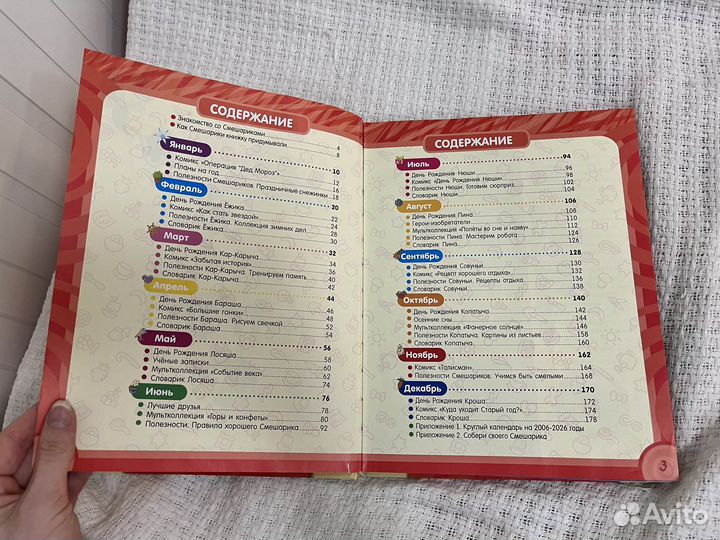 СОДЕРЖАНИЕ
Знакомство со Смешариками 4
Как Смешарики книжку придумывали 8
Январь 10
Комикс «Операция "Дед Мороз"» 12
Планы на год 16
Полезности Смешариков. Праздничные снежинки 18
Февраль 20
День Рождения Ёжика 22
Комикс «Как стать звездой» 24
Полезности Ёжика. Коллекция зимних дел 28
Словарик Ёжика 30
Март 32
День Рождения Кар-Карыча 34
Комикс «Забытая история» 36
Полезности Кар-Карыча. Тренируем память 40
Словарик Кар-Карыча 42
Апрель 44
День Рождения Бараша 46
Комикс «Большие гонки» 48
Полезности Бараша. Рисуем свечкой 52
Словарик Бараша 54
Май 56
День Рождения Лосяша 58
Учёные записки 60
Мультколлекция «Событие века» 62
Словарик Лосяша 74
Июнь 76
Лучшие друзья 78
Мультколлекция «Горы и конфеты» 80
Полезности. Правила хорошего Смешарика 92
СОДЕРЖАНИЕ
Июль 94
День Рождения Нюши 96
Комикс «День Рождения Нюши» 98
Полезности Нюши. Готовим сюрприз 102
Словарик Нюши 104
Август 106
День Рождения Пина 108
Герои-изобретатели 110
Мультколлекция «Полёты во сне и наяву» 112
Полезности Пина. Мастерим робота 124
Словарик Пина 126
Сентябрь 128
День Рождения Совуньи 130
Комикс «Рецепт хорошего отдыха» 132
Полезности Совуньи. Рецепты отдыха 136
Словарик Совуньи 138
Октябрь 140
День Рождения Копатыча 142
Осенние сны 144
Мультколлекция «Фанерное солнце» 146
Полезности Копатыча. Картины из листьев 158
Словарик Копатыча 160
Ноябрь 162
Комикс «Талисман» 164
Полезности Смешариков. Учимся быть смелыми 168
Декабрь 170
День Рождения Кроша 172
Комикс «Куда уходит Старый год?» 174
Словарик Кроша 178
Приложение 1. Круглый календарь на 2006-2026 годы
Приложение 2. Собери своего Смешарика
3
Avito